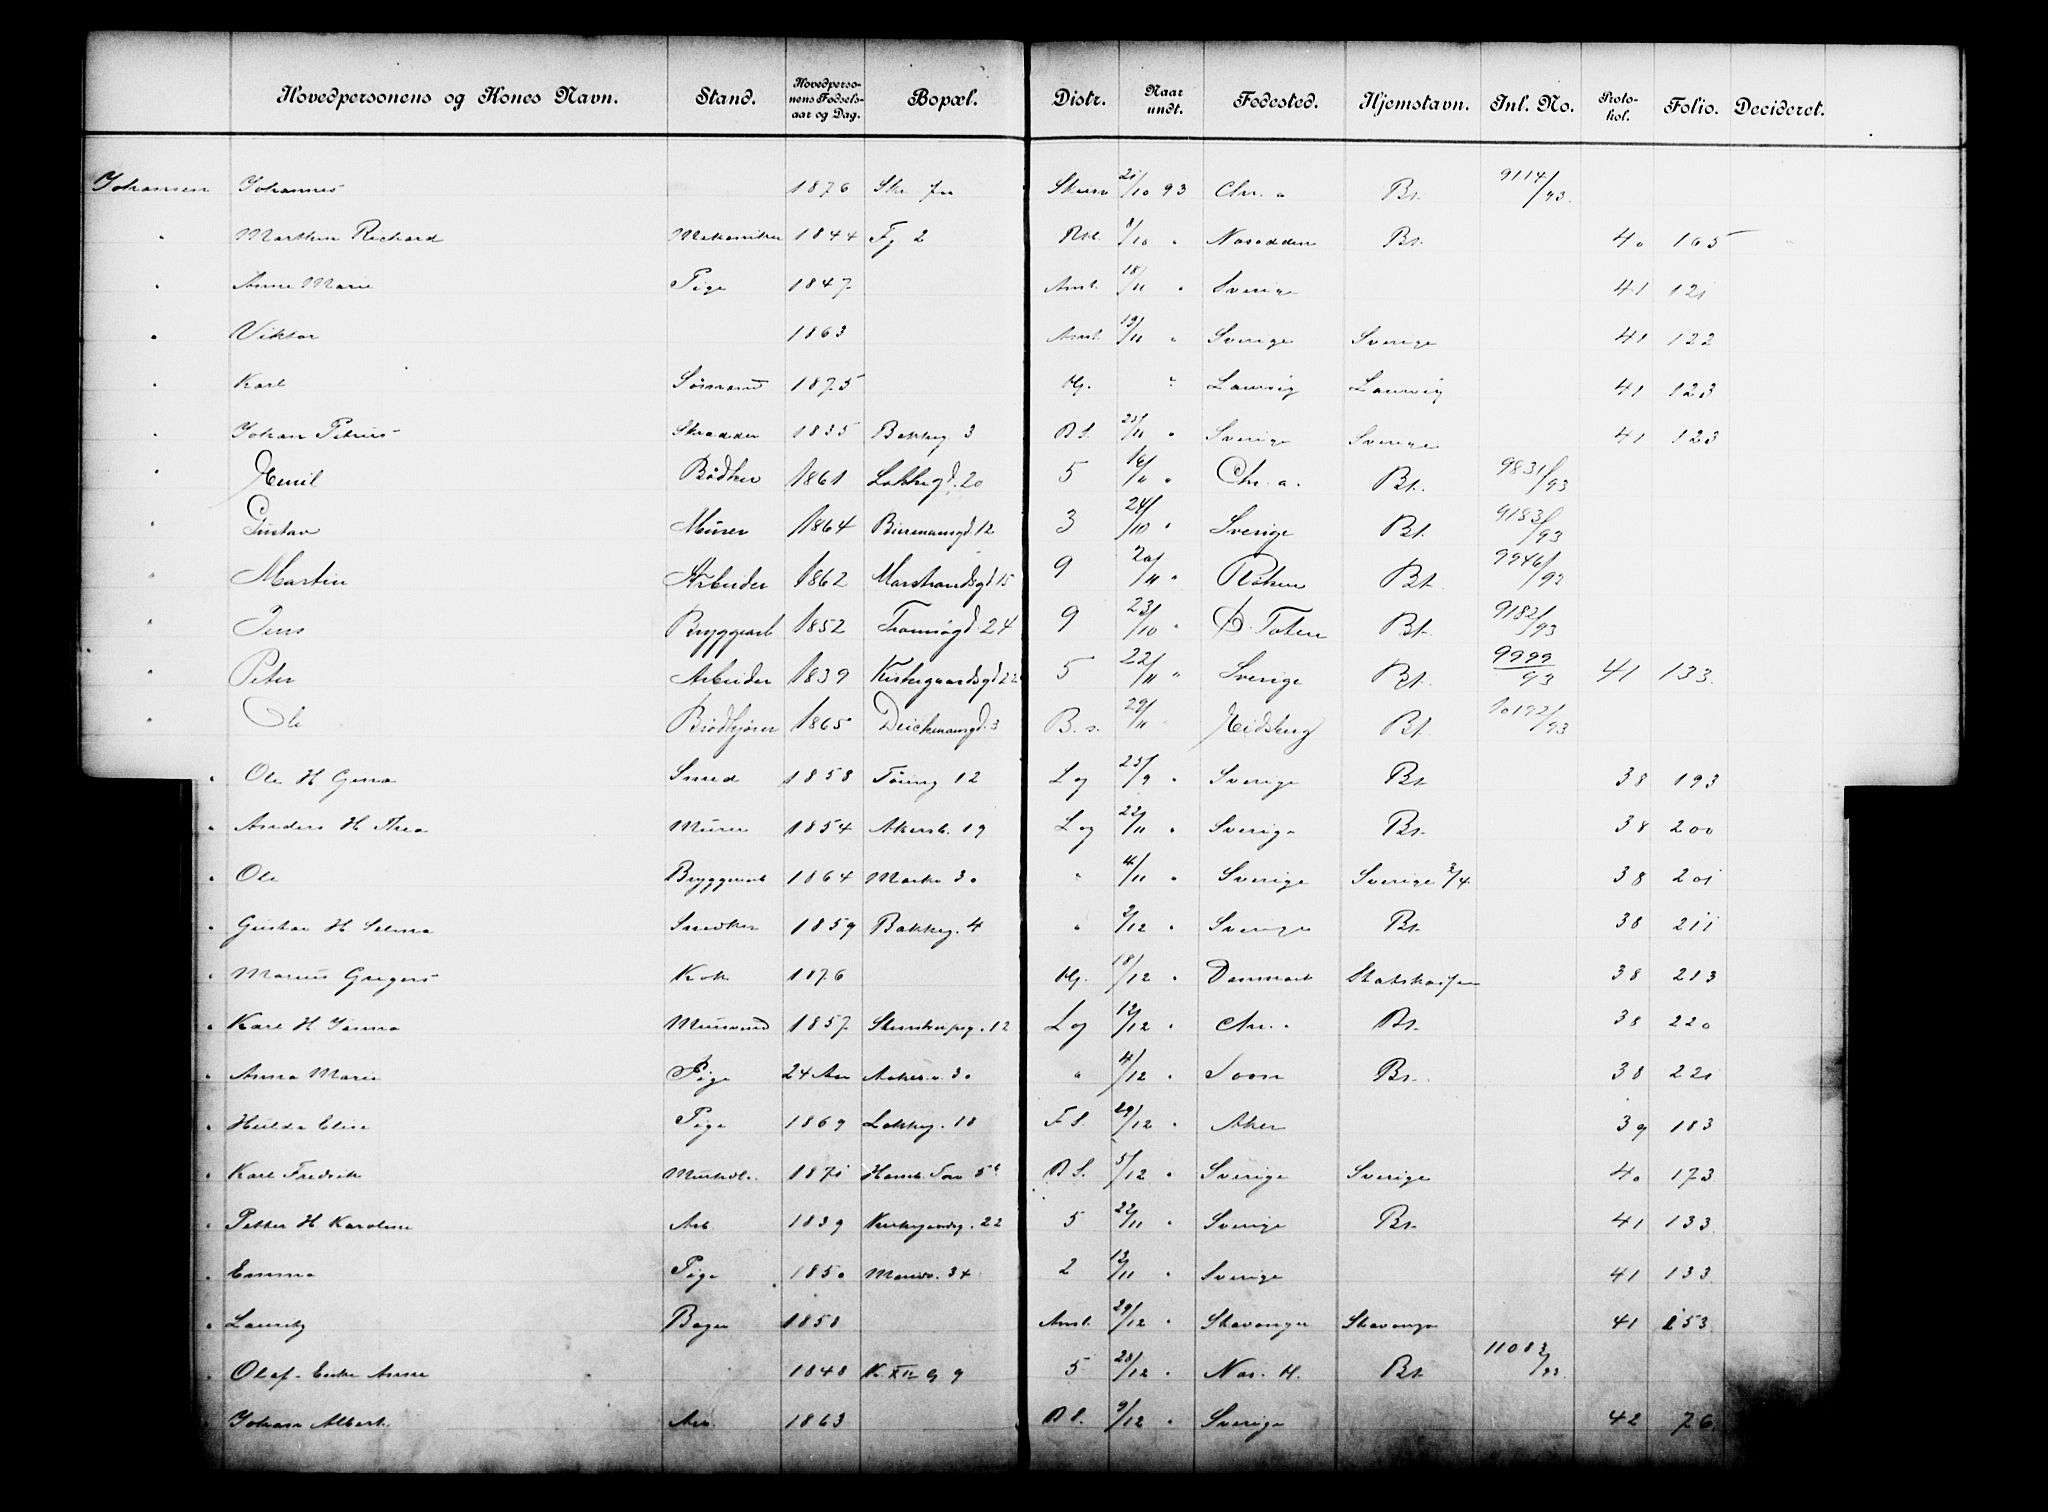 Hovedpersonens og Kones Navn. Stand. Hovedperso-nens Fødsels-aar og Dag. Bopæl. Distr. Naar undt. Fødested. Hjemstavn. Inl. No. Proto-kol. Folio. Decideret.
Johansen Johannes 1876 21/10 93 Chr. a Bt. 9114/93.
" Marthin Richard Mekaniker 1844 Fg 2 8/10 " Næsodden Bt. 40 165
" Anne Marie Pige 1847 Anst. 18/11 " Sverige 41 121
" Viktor 1863 Anst. 19/11 " Sverige Sverige 41 122
" Karl Sømand 1875 Hj. " Laurvig Laurvig 41 123
" Johan Petrus Skrædder 1835 Bakkeg 3 B S. 25/11 " Sverige Sverige 41 123
" Emil Bødker 1861 Løkkegd. 20 5 16/11 " Chr. a. Bt. 9831/93
" Gustav Murer 1864 Biermannsgd. 12 3 24/10 " Sverige Bt. 9183/93
" Martin Arbeider 1862 Marstrandsgd 15 9 20/11 " Røken Bt. 9946/93
" Jens Bryggearb 1852 Tromsøgd. 24 9 23/10 " Ø. Toten Bt. 9182/93
" Peter Arbeider 1839 Kirkegaardsgd 22 5 22/11 " Sverige Bt. 9999/93 41 133.
" Ole Brødkjører 1865 Deichmansgd. 3 B. s. 29/11 Eidsberg Bt. 10192/93
" Ole H Gina Smed 1858 Tøieng 12 L og 25/9 " Sverige Bt. 38 193
" Anders H Thea Murer 1854 Akersb. 19 L og 22/11 " Sverige Bt. 38 200
" Ole Bryggearb 1864 Markv 30 " 4/11 " Sverige Sverige 2/4 38 201
" Gustav H Selma Snedker 1859 Bakkeg. 4 " 2/12 " Sverige Bt. 38 211
" Marius Gregers Kok 1876 Hj. 18/12 " Danmark Statskassen 38 213
" Karl H Janna Murarbd 1857 Stenstrupsg. 12 L og 12/12 " Chr. a Bt. 38 220
" Anna Marie Pige 24 Aar Akers. v. 30 " 4/12 " Soon Bt. 38 221
" Hulda Elise Pige 1869 Løkkeg. 18 F S. 29/12 " Aker 39 183
" Karl Fredrik 1871 B S. 5/12 " Sverige Sverige 40 173
" Petter H Karoline Arb. 1839 Kirkegaardsg. 22 5 22/11 " Sverige Bt. 41 133
" Emma Pige 1850 Marib. 34 2 12/11 " Sverige 41 133.
" Lauritz Bager 1858 Anst. 29/12 " Stavanger Stavanger 41 153.
" Olaf - Enke Anne 1848 K. XII G 9 5 28/12 " Nas. H. Bt. 11083/93.
" Johan Albert. Arb. 1863 B S. 9/12 " Sverige 42 76.